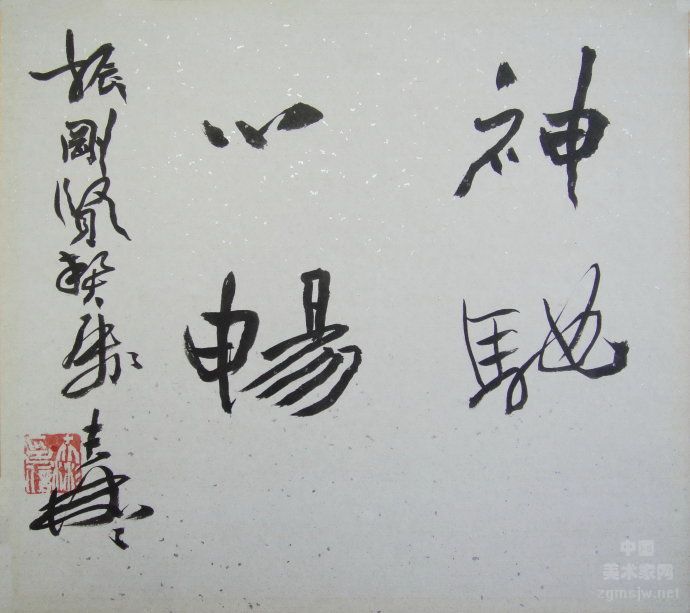 神馳
心暢
振剛賢契屬
中国
美术家网
zgmsjw.net